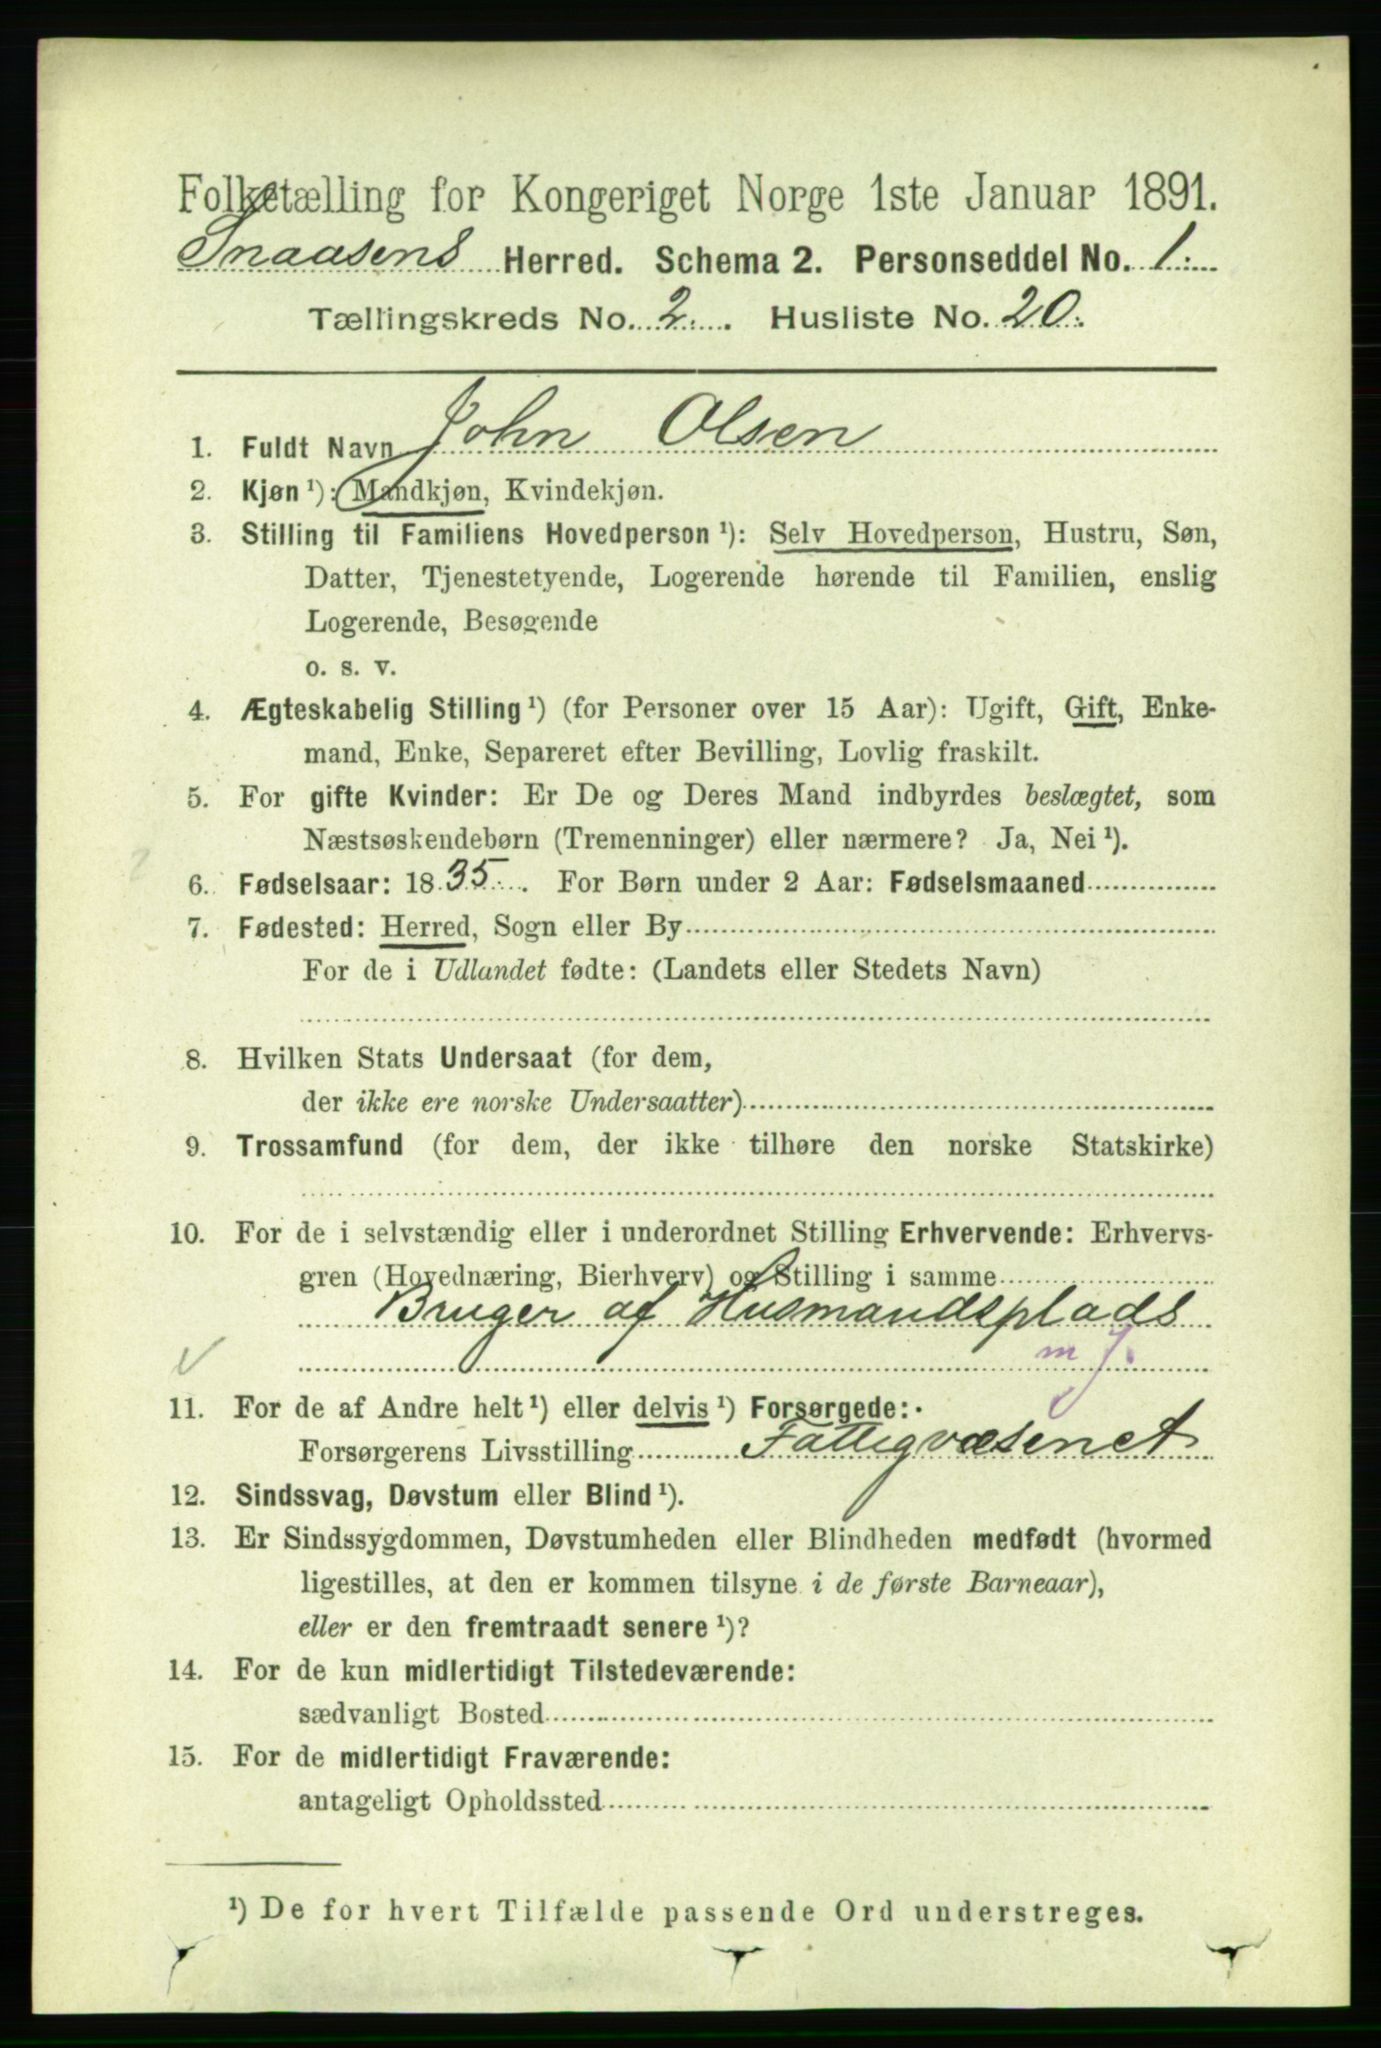 Folketælling for Kongeriget Norge 1ste Januar 1891.
Snaasens Herred. Schema 2. Personseddel No. 1.
Tællingskreds No. 2. Husliste No. 20.
1. Fuldt Navn John Olsen
2. Kjøn ¹): Mandkjøn, Kvindekjøn.
3. Stilling til Familiens Hovedperson ¹): Selv Hovedperson, Hustru, Søn,
Datter, Tjenestetyende, Logerende hørende til Familien, enslig
Logerende, Besøgende
o. s. v.
4. Ægteskabelig Stilling ¹) (for Personer over 15 Aar): Ugift, Gift, Enke-
mand, Enke, Separeret efter Bevilling, Lovlig fraskilt.
5. For gifte Kvinder: Er De og Deres Mand indbyrdes beslægtet, som
Næstsøskendebørn (Tremenninger) eller nærmere? Ja, Nei ¹).
6. Fødselsaar: 1835. For Børn under 2 Aar: Fødselsmaaned
7. Fødested: Herred, Sogn eller By
For de i Udlandet fødte: (Landets eller Stedets Navn)
8. Hvilken Stats Undersaat (for dem,
der ikke ere norske Undersaatter)
9. Trossamfund (for dem, der ikke tilhøre den norske Statskirke)
10. For de i selvstændig eller i underordnet Stilling Erhvervende: Erhvervs-
gren (Hovednæring, Bierhverv) og Stilling i samme
Bruger af Husmandsplads
m J.
11. For de af Andre helt ¹) eller delvis ¹) Forsørgede:
Forsørgerens Livsstilling Fattigvæsenet
12. Sindssvag, Døvstum eller Blind ¹).
13. Er Sindssygdommen, Døvstumheden eller Blindheden medfødt (hvormed
ligestilles, at den er kommen tilsyne i de første Barneaar),
eller er den fremtraadt senere ¹)?
14. For de kun midlertidigt Tilstedeværende:
sædvanligt Bosted
15. For de midlertidigt Fraværende:
antageligt Opholdssted
¹) De for hvert Tilfælde passende Ord understreges.